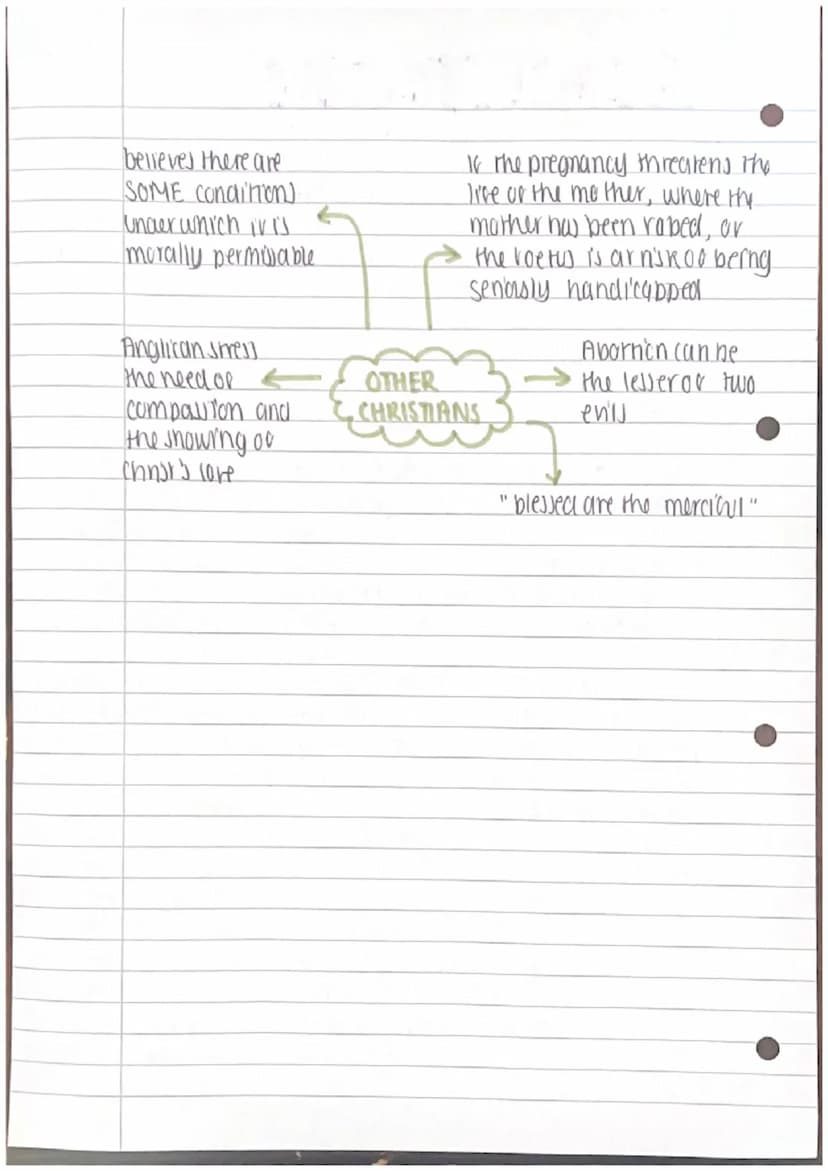 believes there are
SOME conditions
under which it is
morally permissable
If the pregnancy threatens the
life of the mother, where the
mother has been raped, or
the foetus is at risk of being
seriously handicapped
Anglican stress
the need of
compassion and
the showing of
Christ's love
OTHER
CHRISTIANS
Abortion can be
the lesser of two
evils
"blessed are the merciful"